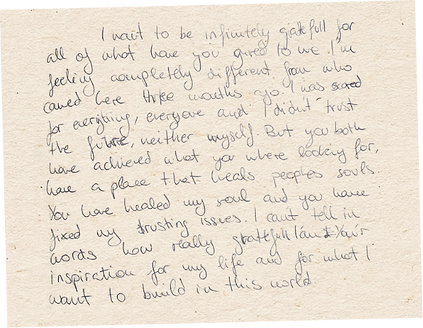 I want to be infinitely gratefull for
all of what have you gived to me. I'm
feeling completely different from who
camed here three months ago. I was scared
for everything, everyone and I didn't trust
the future, neither myself. But you both
have achieved what you where looking for,
have a place that heals peoples souls
You have healed my soul and you have
fixed my trusting issues. I can't tell in
words how really gratefull I am! Your
inspiration for my life and for what I
want to build in this world